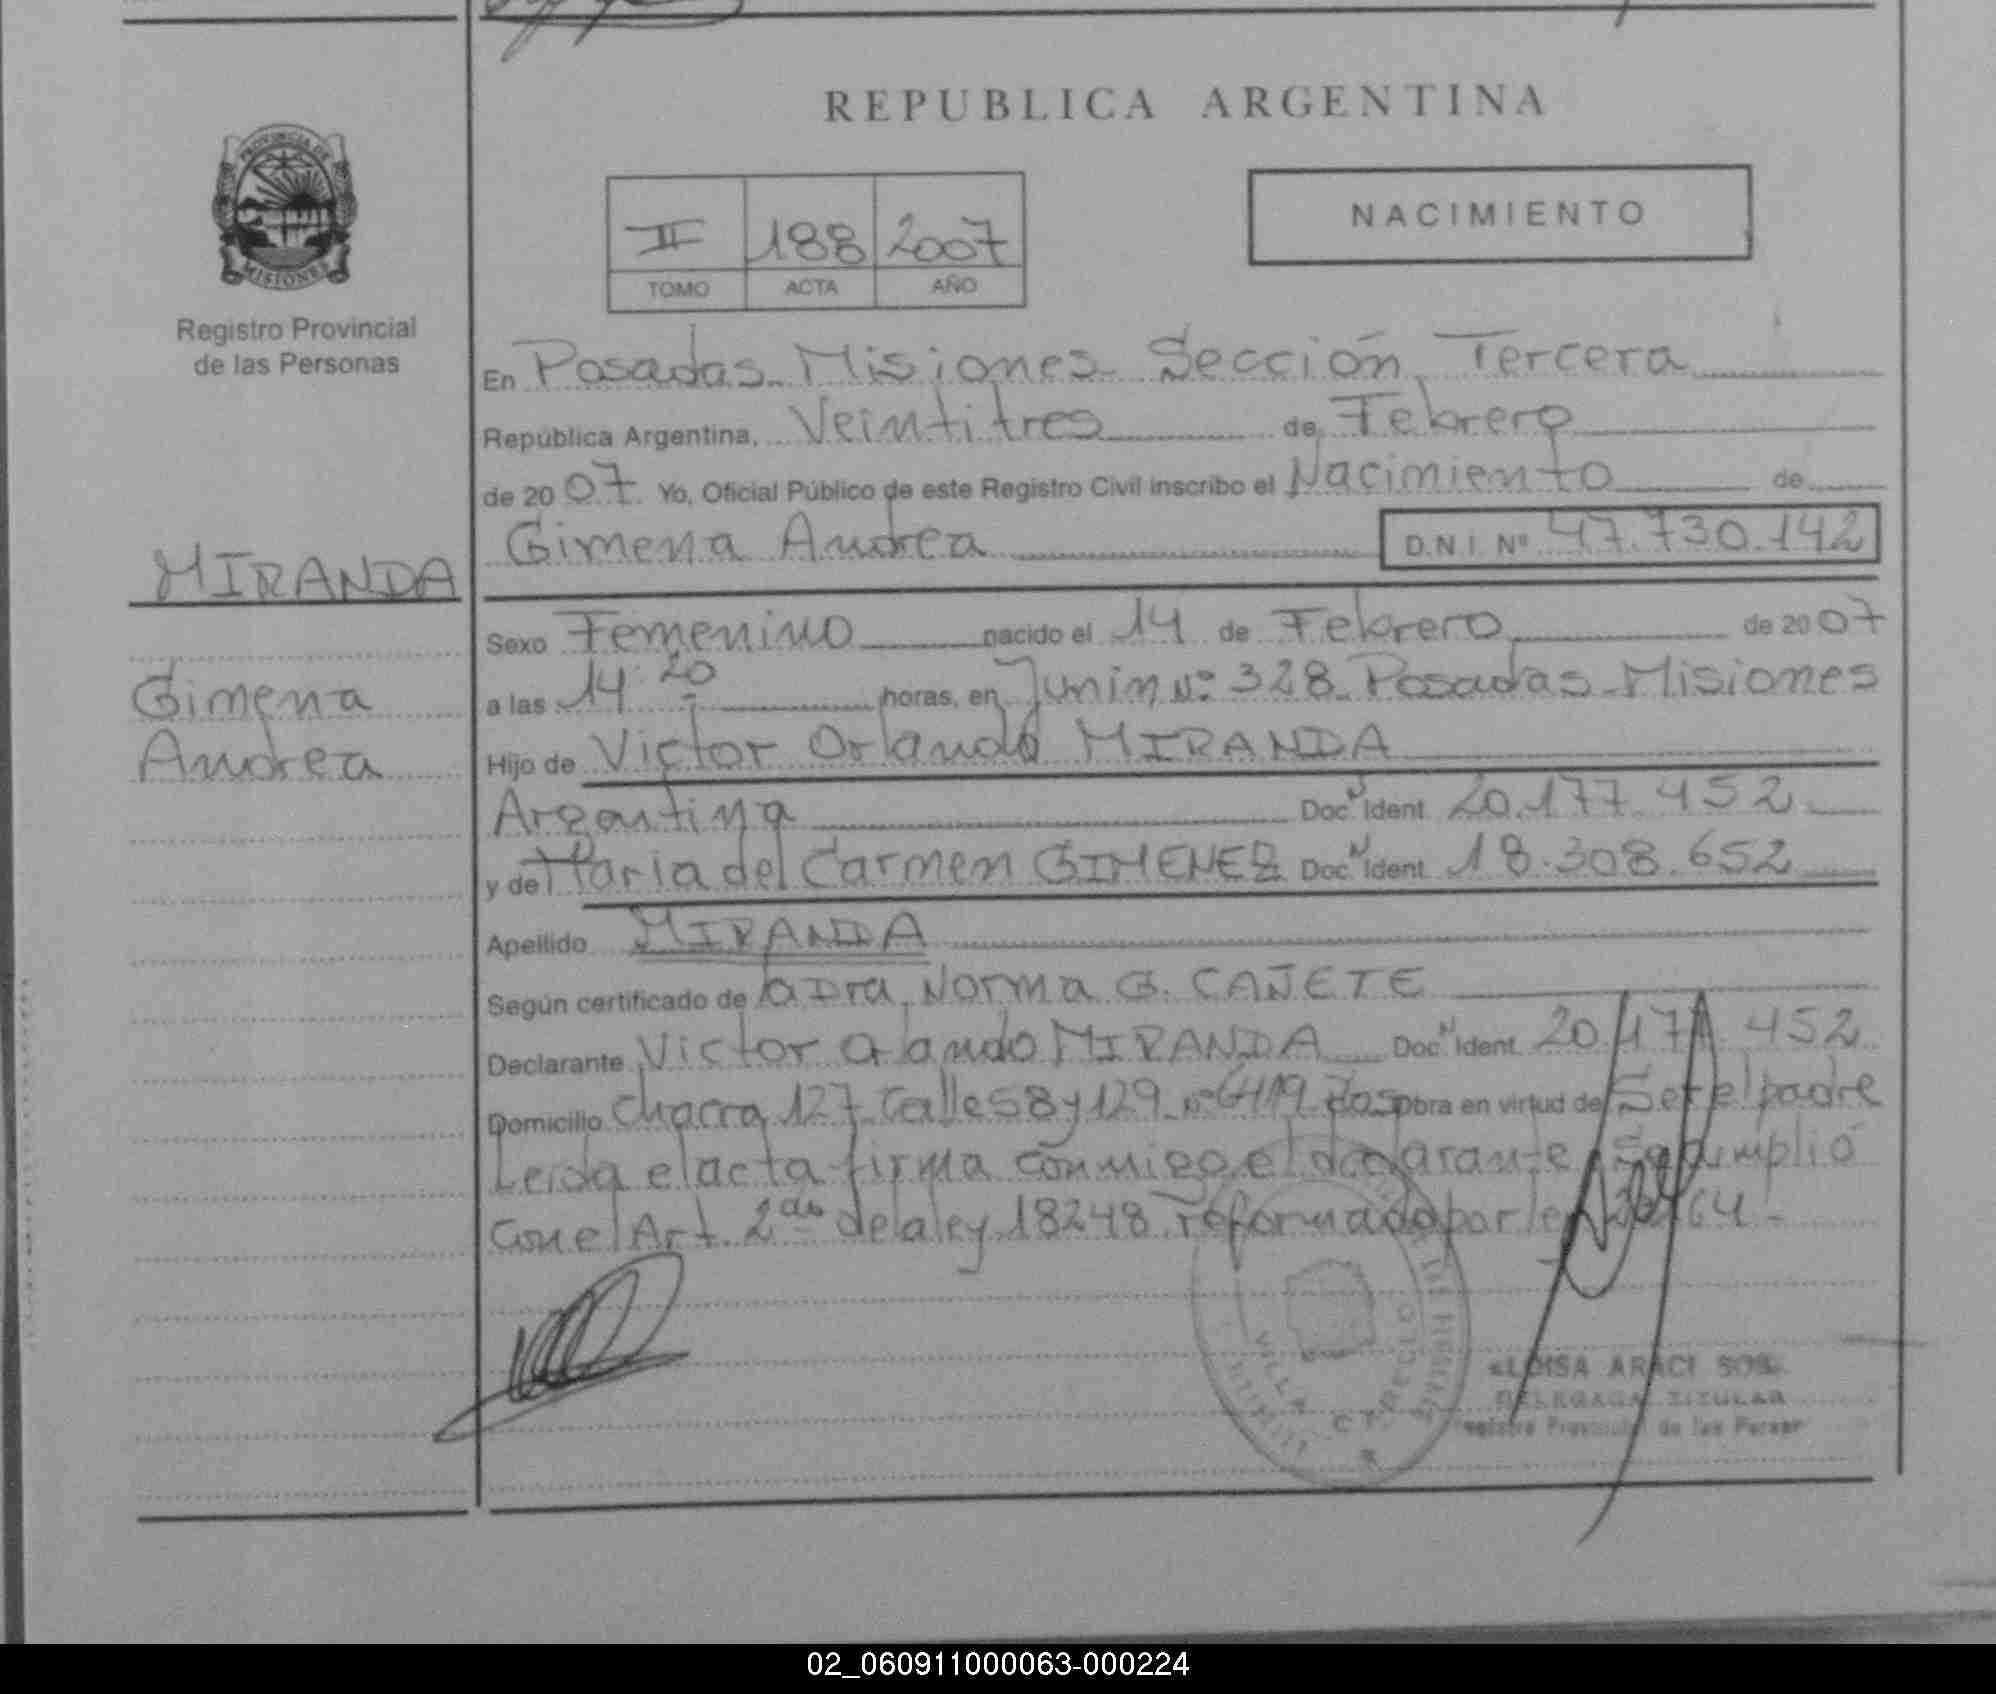 REPUBLICA ARGENTINA
PROVINCIA DE
MISIONES
Registro Provincial
de las Personas
II 188 2007
TOMO ACTA AÑO
NACIMIENTO
En Posadas Misiones Sección Tercera
República Argentina, Veintitres de Febrero
de 2007 Yo, Oficial Público de este Registro Civil inscribo el Nacimiento de
Gimena Andrea D.N.I. Nº 47.730.142
MIRANDA
Gimena
Andrea
Sexo Femenino nacido el 14 de Febrero de 2007
a las 14:20 horas, en Junin Nº 328 Posadas Misiones
Hijo de Victor Orlando MIRANDA
Argentina Doc N Ident 20.177.452
y de Maria del Carmen GIMENEZ Doc N Ident 18.308.652
Apellido MIRANDA
Según certificado de la Dra. Norma G. CAÑETE
Declarante Victor Orlando MIRANDA Doc N Ident 20 177 452
Domicilio Chacra 127 Calle 58 y 129 Nº 6419 Pos obra en virtud de Ser el padre
Leida el acta firma conmigo el declarante Se cumplió
con el Art. 2do de la ley 18248 reformado por ley
VILLA
REGISTRO Provincial de las Person
02_060911000063-000224